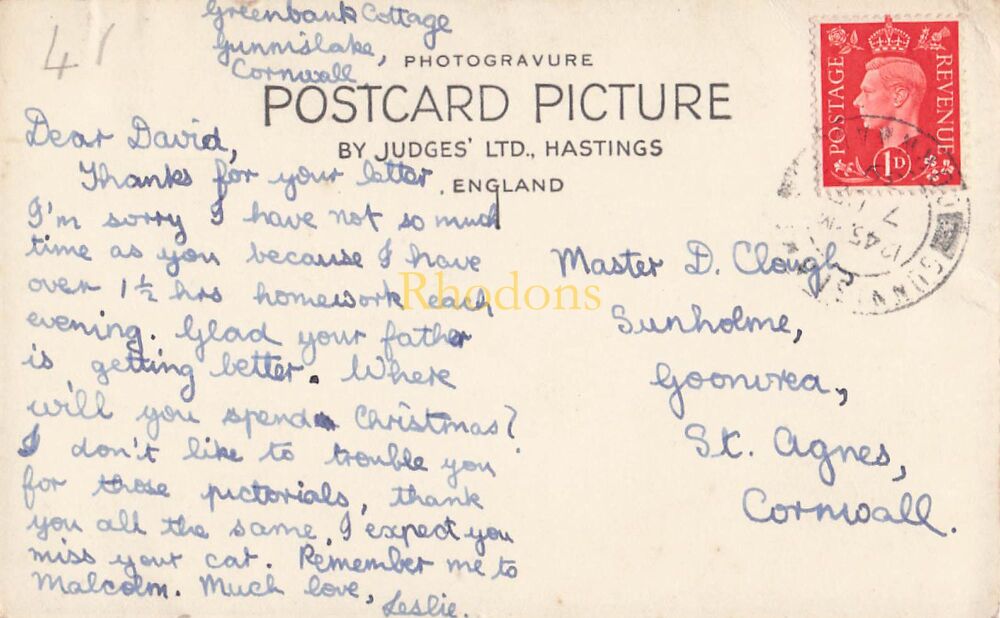 41
Greenbank Cottage
Gunnislake,
Cornwall
PHOTOGRAVURE
POSTCARD PICTURE
BY JUDGES' LTD., HASTINGS
ENGLAND
Dear David,
Thanks for your letter.
I'm sorry I have not so much
time as you because I have
over 1½ hrs homework each
evening. Glad your father
is getting better. Where
will you spend Christmas?
I don't like to trouble you
for those pictorials, thank
you all the same. I expect you
miss your cat. Remember me to
Malcolm. Much love,
Leslie.
POSTAGE
REVENUE
1D
1245 PM
7
GUNNISLAKE
CORNWALL
Master D. Clough
Sunholme,
Goonvrea,
St. Agnes,
Cornwall.
Rhodons